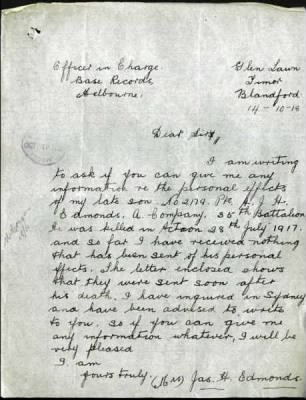 Officer in Charge. Glen Lawn
Base Records Timor
Melbourne. Blandford.
14-10-18
Dear Sir,
I am writing
to ask if you can give me any
information re the personal effects
of my late son. No 2179. Pte A. J. H.
Edmonds. A. Company. 35th Battalion
he was killed in Action 28th July 1917.
and so far I have received nothing
that has been sent of his personal
effects. The letter enclosed shows
that they were sent soon after
his death. I have inquired in Sydney
and have been advised to write
to you. So if you can give me
any information whatever, I will be
very pleased
I am
yours truly. (Mrs) Jas. H. Edmonds.